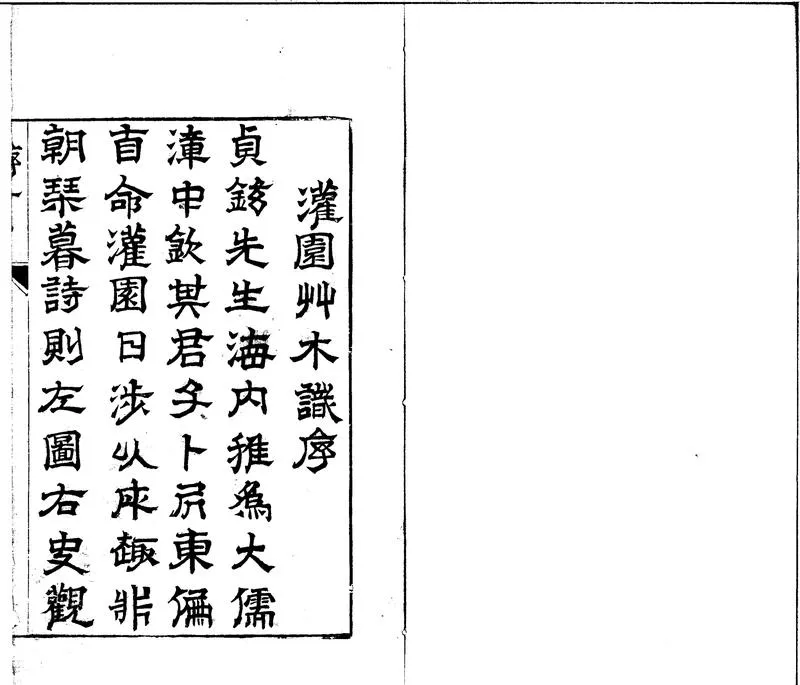 灌園艸木識序
貞鉉先生海内推爲大儒
漳中欽其君子卜凥東偏
自命灌園日涉以成趣非
朝琴暮詩則左圖右史觀